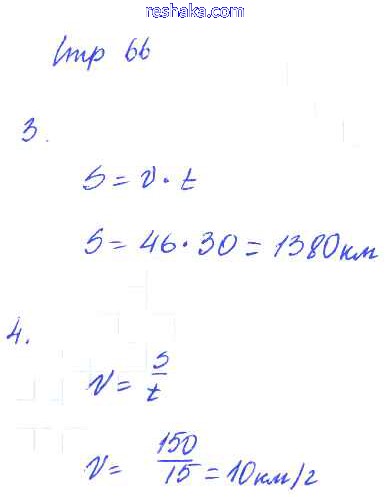 reshaka.com
Стр 66
3.
S = v · t
S = 46 · 30 = 1380 км
4.
v = S/t
v = 150/15 = 10 км/г